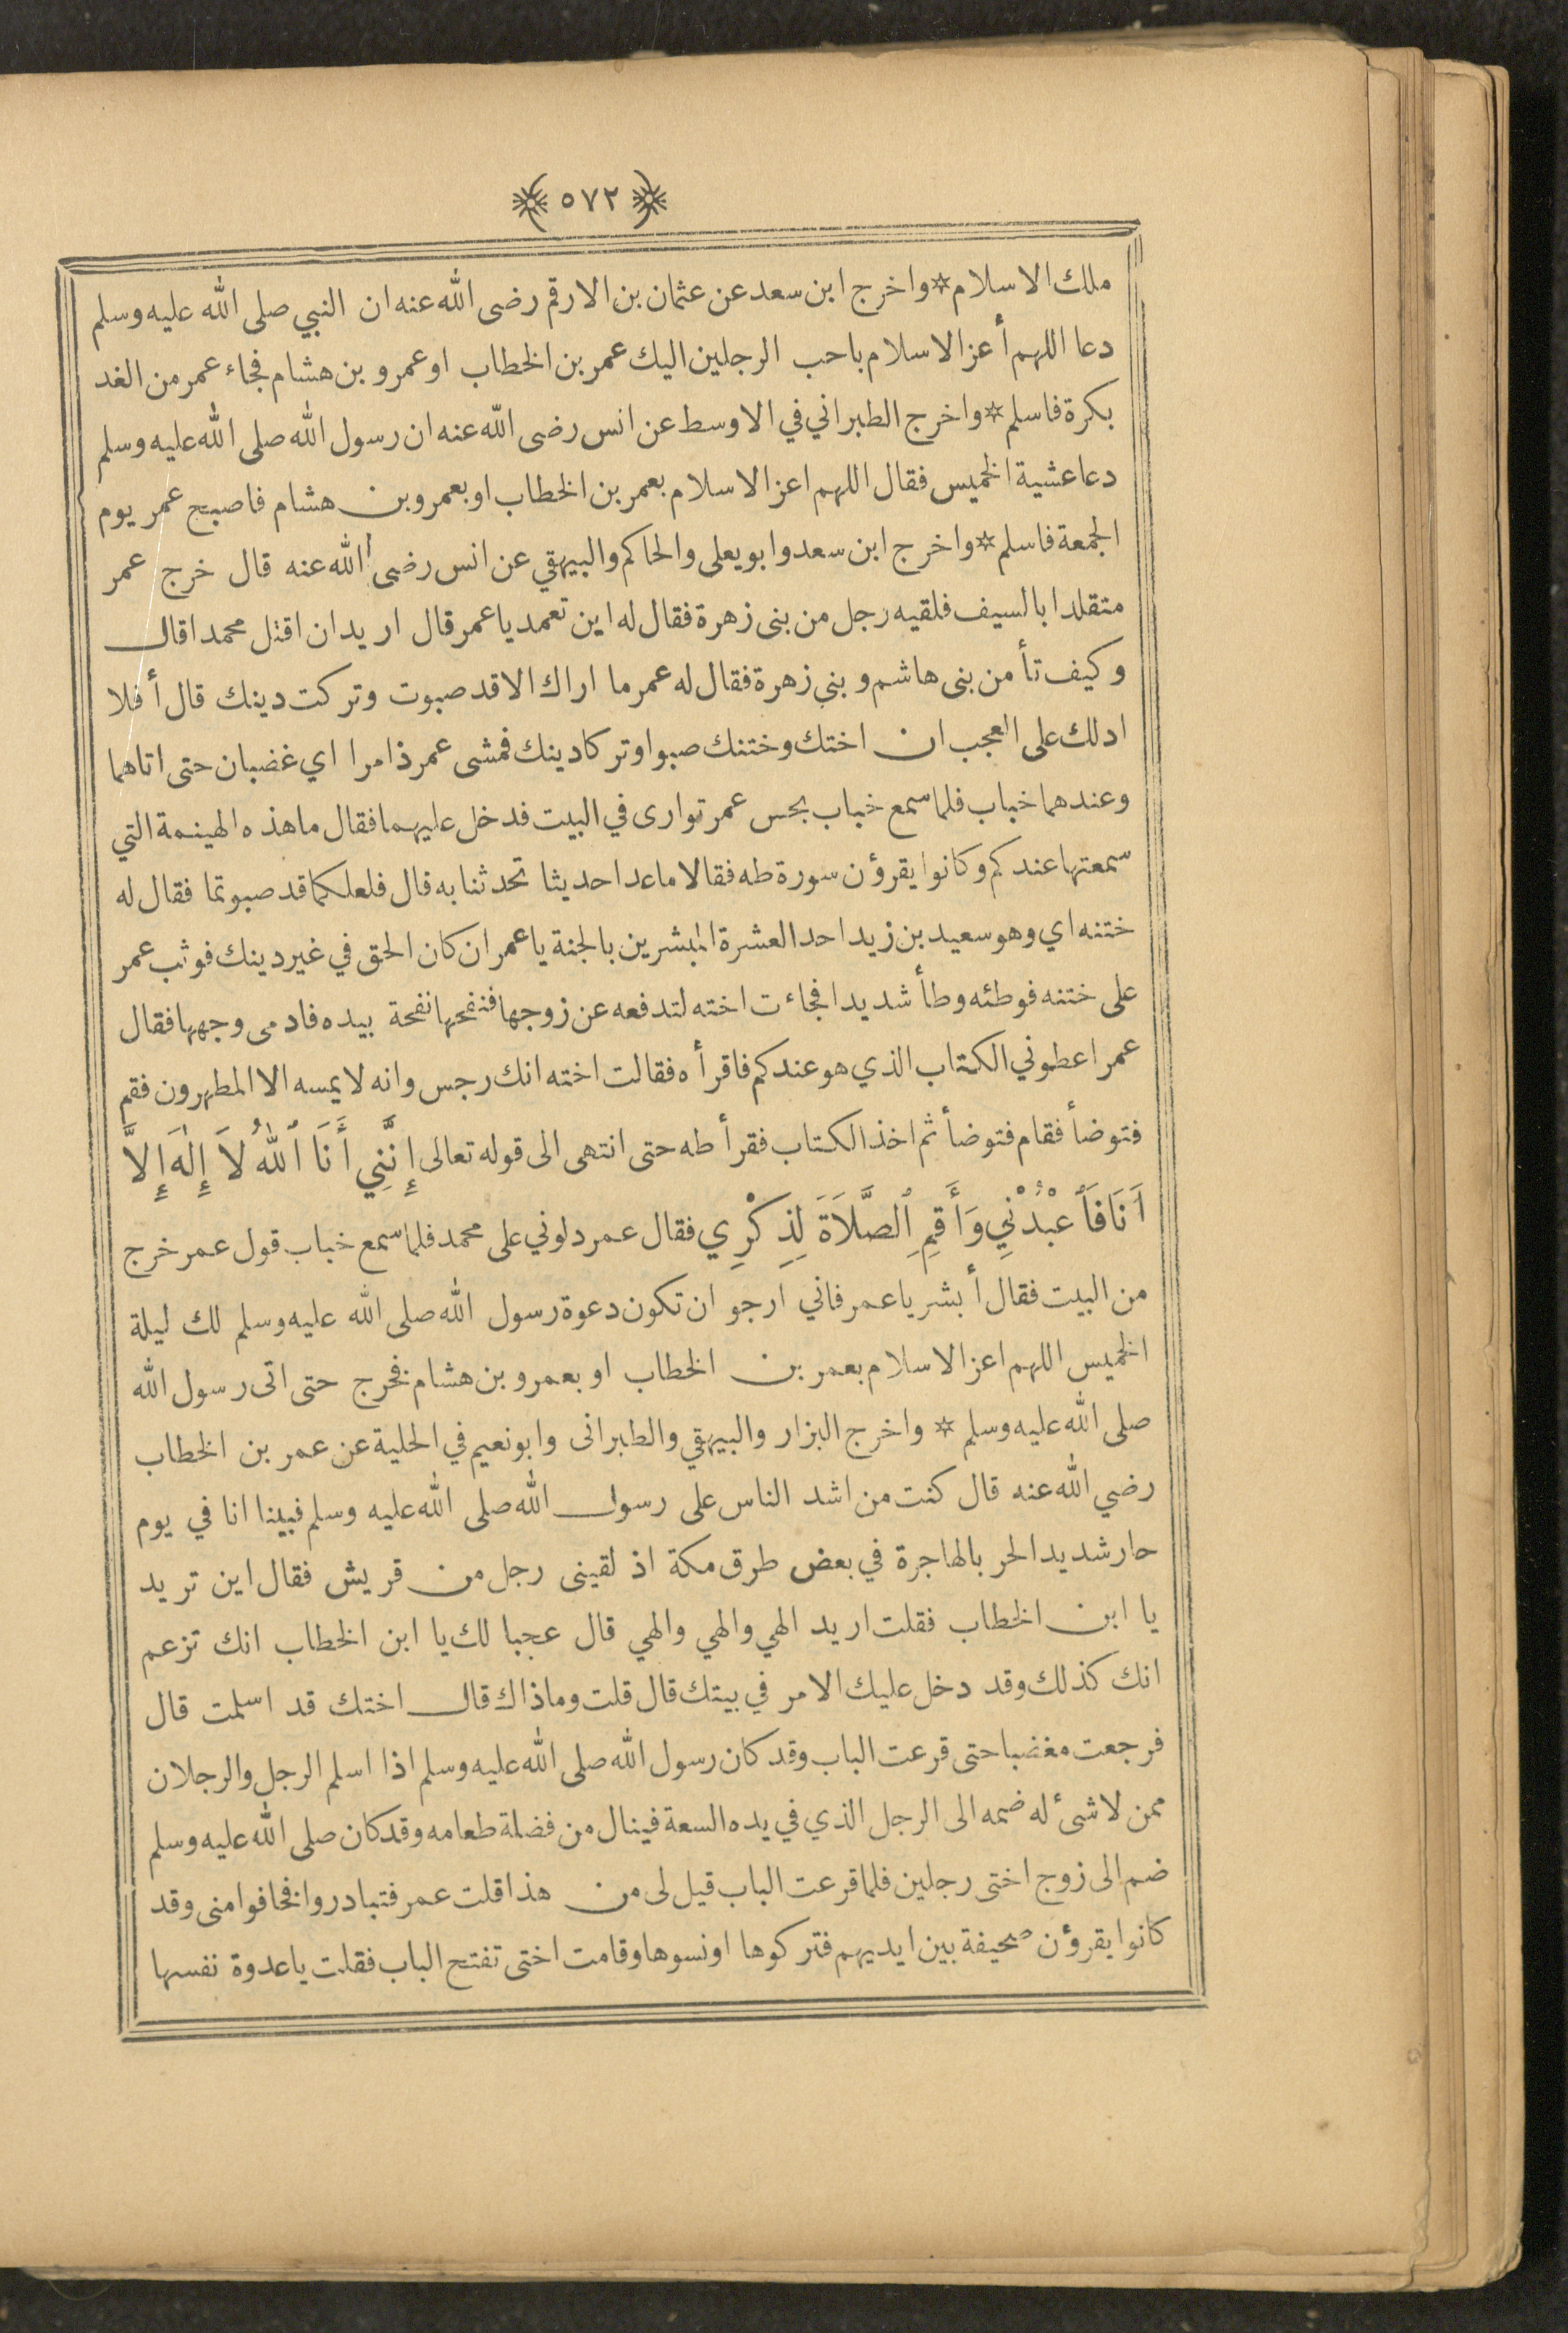 ﴿ ٥٧٢ ﴾
ملك الاسلام * واخرج ابن سعد عن عثمان بن الارقم رضى الله عنه ان النبي صلى الله عليه وسلم
دعا اللهم أعز الاسلام باحب الرجلين اليك عمر بن الخطاب او عمرو بن هشام فجاء عمر من الغد
بكرة فاسلم * واخرج الطبراني في الاوسط عن انس رضى الله عنه ان رسول الله صلى الله عليه وسلم
دعا عشية الخميس فقال اللهم اعز الاسلام بعمر بن الخطاب او بعمرو بن هشام فاصبح عمر يوم
الجمعة فاسلم * واخرج ابن سعد وابو يعلى والحاكم والبيهقي عن انس رضى الله عنه قال خرج عمر
متقلدا بالسيف فلقيه رجل من بنى زهرة فقال له اين تعمد يا عمر قال اريد ان اقتل محمدا قال
وكيف تأمن بنى هاشم وبني زهرة فقال له عمر ما اراك الا قد صبوت وتركت دينك قال أفلا
ادلك على العجب ان اختك وختنك صبوا وتركا دينك فمشى عمر ذامرا اي غضبان حتى اتاهما
وعندهما خباب فلما سمع خباب بحس عمر توارى في البيت فدخل عليهما فقال ما هذه الهينمة التي
سمعتها عندكم وكانوا يقرؤن سورة طه فقالا ما عدا حديثا تحدثنا به قال فلعلكما قد صبوتما فقال له
ختنه اي وهو سعيد بن زيد احد العشرة المبشرين بالجنة يا عمر ان كان الحق في غير دينك فوثب عمر
على ختنه فوطئه وطأ شديدا فجاءت اخته لتدفعه عن زوجها فنفحها نفحة بيده فادمى وجهها فقال
عمر اعطوني الكتاب الذي هو عندكم فاقرأه فقالت اخته انك رجس وانه لا يمسه الا المطهرون فقم
فتوضأ فقام فتوضأ ثم اخذ الكتاب فقرأ طه حتى انتهى الى قوله تعالى إِنَّنِي أَنَا ٱللهُ لاَ إِلٰهَ إِلاَّ
أَنَا فَٱعْبُدْنِي وَأَقِمِ ٱلصَّلاَةَ لِذِكْرِي فقال عمر دلوني على محمد فلما سمع خباب قول عمر خرج
من البيت فقال أبشر يا عمر فاني ارجو ان تكون دعوة رسول الله صلى الله عليه وسلم لك ليلة
الخميس اللهم اعز الاسلام بعمر بن الخطاب او بعمرو بن هشام فخرج حتى اتى رسول الله
صلى الله عليه وسلم * واخرج البزار والبيهقي والطبرانى وابو نعيم في الحلية عن عمر بن الخطاب
رضي الله عنه قال كنت من اشد الناس على رسول الله صلى الله عليه وسلم فبينا انا في يوم
حار شديد الحر بالهاجرة في بعض طرق مكة اذ لقينى رجل من قريش فقال اين تريد
يا ابن الخطاب فقلت اريد الهي والهي والهي قال عجبا لك يا ابن الخطاب انك تزعم
انك كذلك وقد دخل عليك الامر في بيتك قال قلت وما ذاك قال اختك قد اسلمت قال
فرجعت مغضبا حتى قرعت الباب وقد كان رسول الله صلى الله عليه وسلم اذا اسلم الرجل والرجلان
ممن لا شئ له ضمه الى الرجل الذي في يده السعة فينال من فضلة طعامه وقد كان صلى الله عليه وسلم
ضم الى زوج اختى رجلين فلما قرعت الباب قيل لى من هذا قلت عمر فتبادروا فخافوا منى وقد
كانوا يقرؤن صحيفة بين ايديهم فتركوها او نسوها وقامت اختى تفتح الباب فقلت يا عدوة نفسها